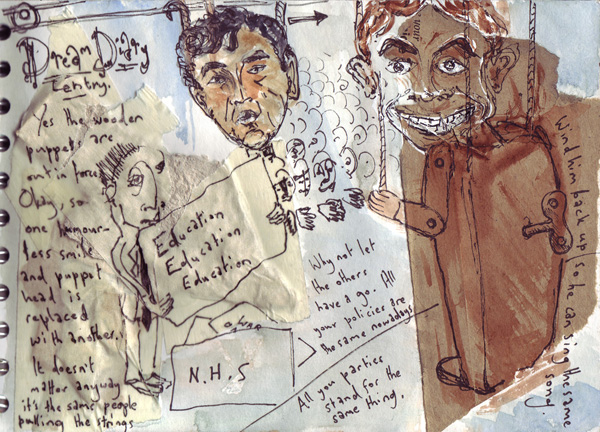 Dream Diary
Entry.
Yes the wooden
puppets are
out in force
Okay, so
one humour-
less smile
and puppet
head is
replaced
with another.
It doesn't
matter anyway
it's the same people
pulling the strings
Education
Education
Education
N.H.S
Why not let
the others
have a go. All
your policies are
the same nowadays
All you parties
stand for the
same thing.
your
Wind him back up so he can sing the same
song.